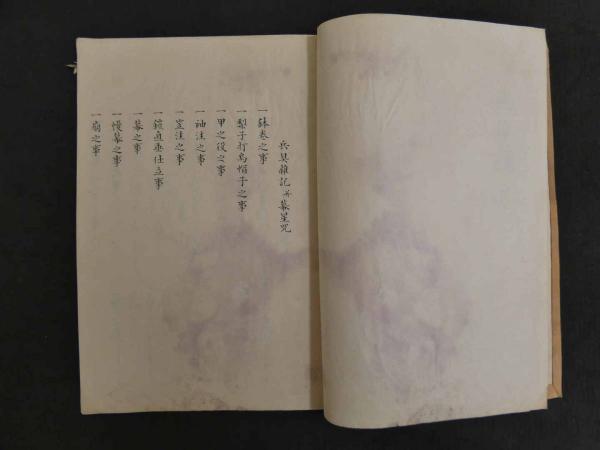 兵具雜記并幕星咒
一鉢卷之事
一梨子打烏帽子之事
一甲之役之事
一袖注之事
一笠注之事
一鎧直垂仕立事
一幕之事
一幔幕之事
一扇之事